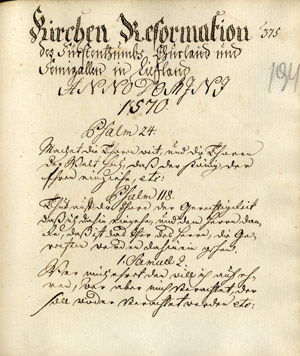 Kirchen Reformation
des Fürstenthumbs Churland und
Semigallen in Liffland
ANNO DOMINI
1570
Psalm 24.
Machet die Thore weit, und die Thüren
der Welt hoch, daß der König der
Ehren einziehe etc:
Psalm 118.
Thut mir auf die Thore der Gerechtigkeit
daß ich dahin eingehe, und dem Herrn dan-
cke, daß ist das Thor des Herrn, die Ge-
rechten werden dahin ein gehen.
1. Samuel 2.
Wer mich ehret den will ich auch eh-
ren, wer aber mich verachtet, der
soll wieder verachtet werden etc:
375
194